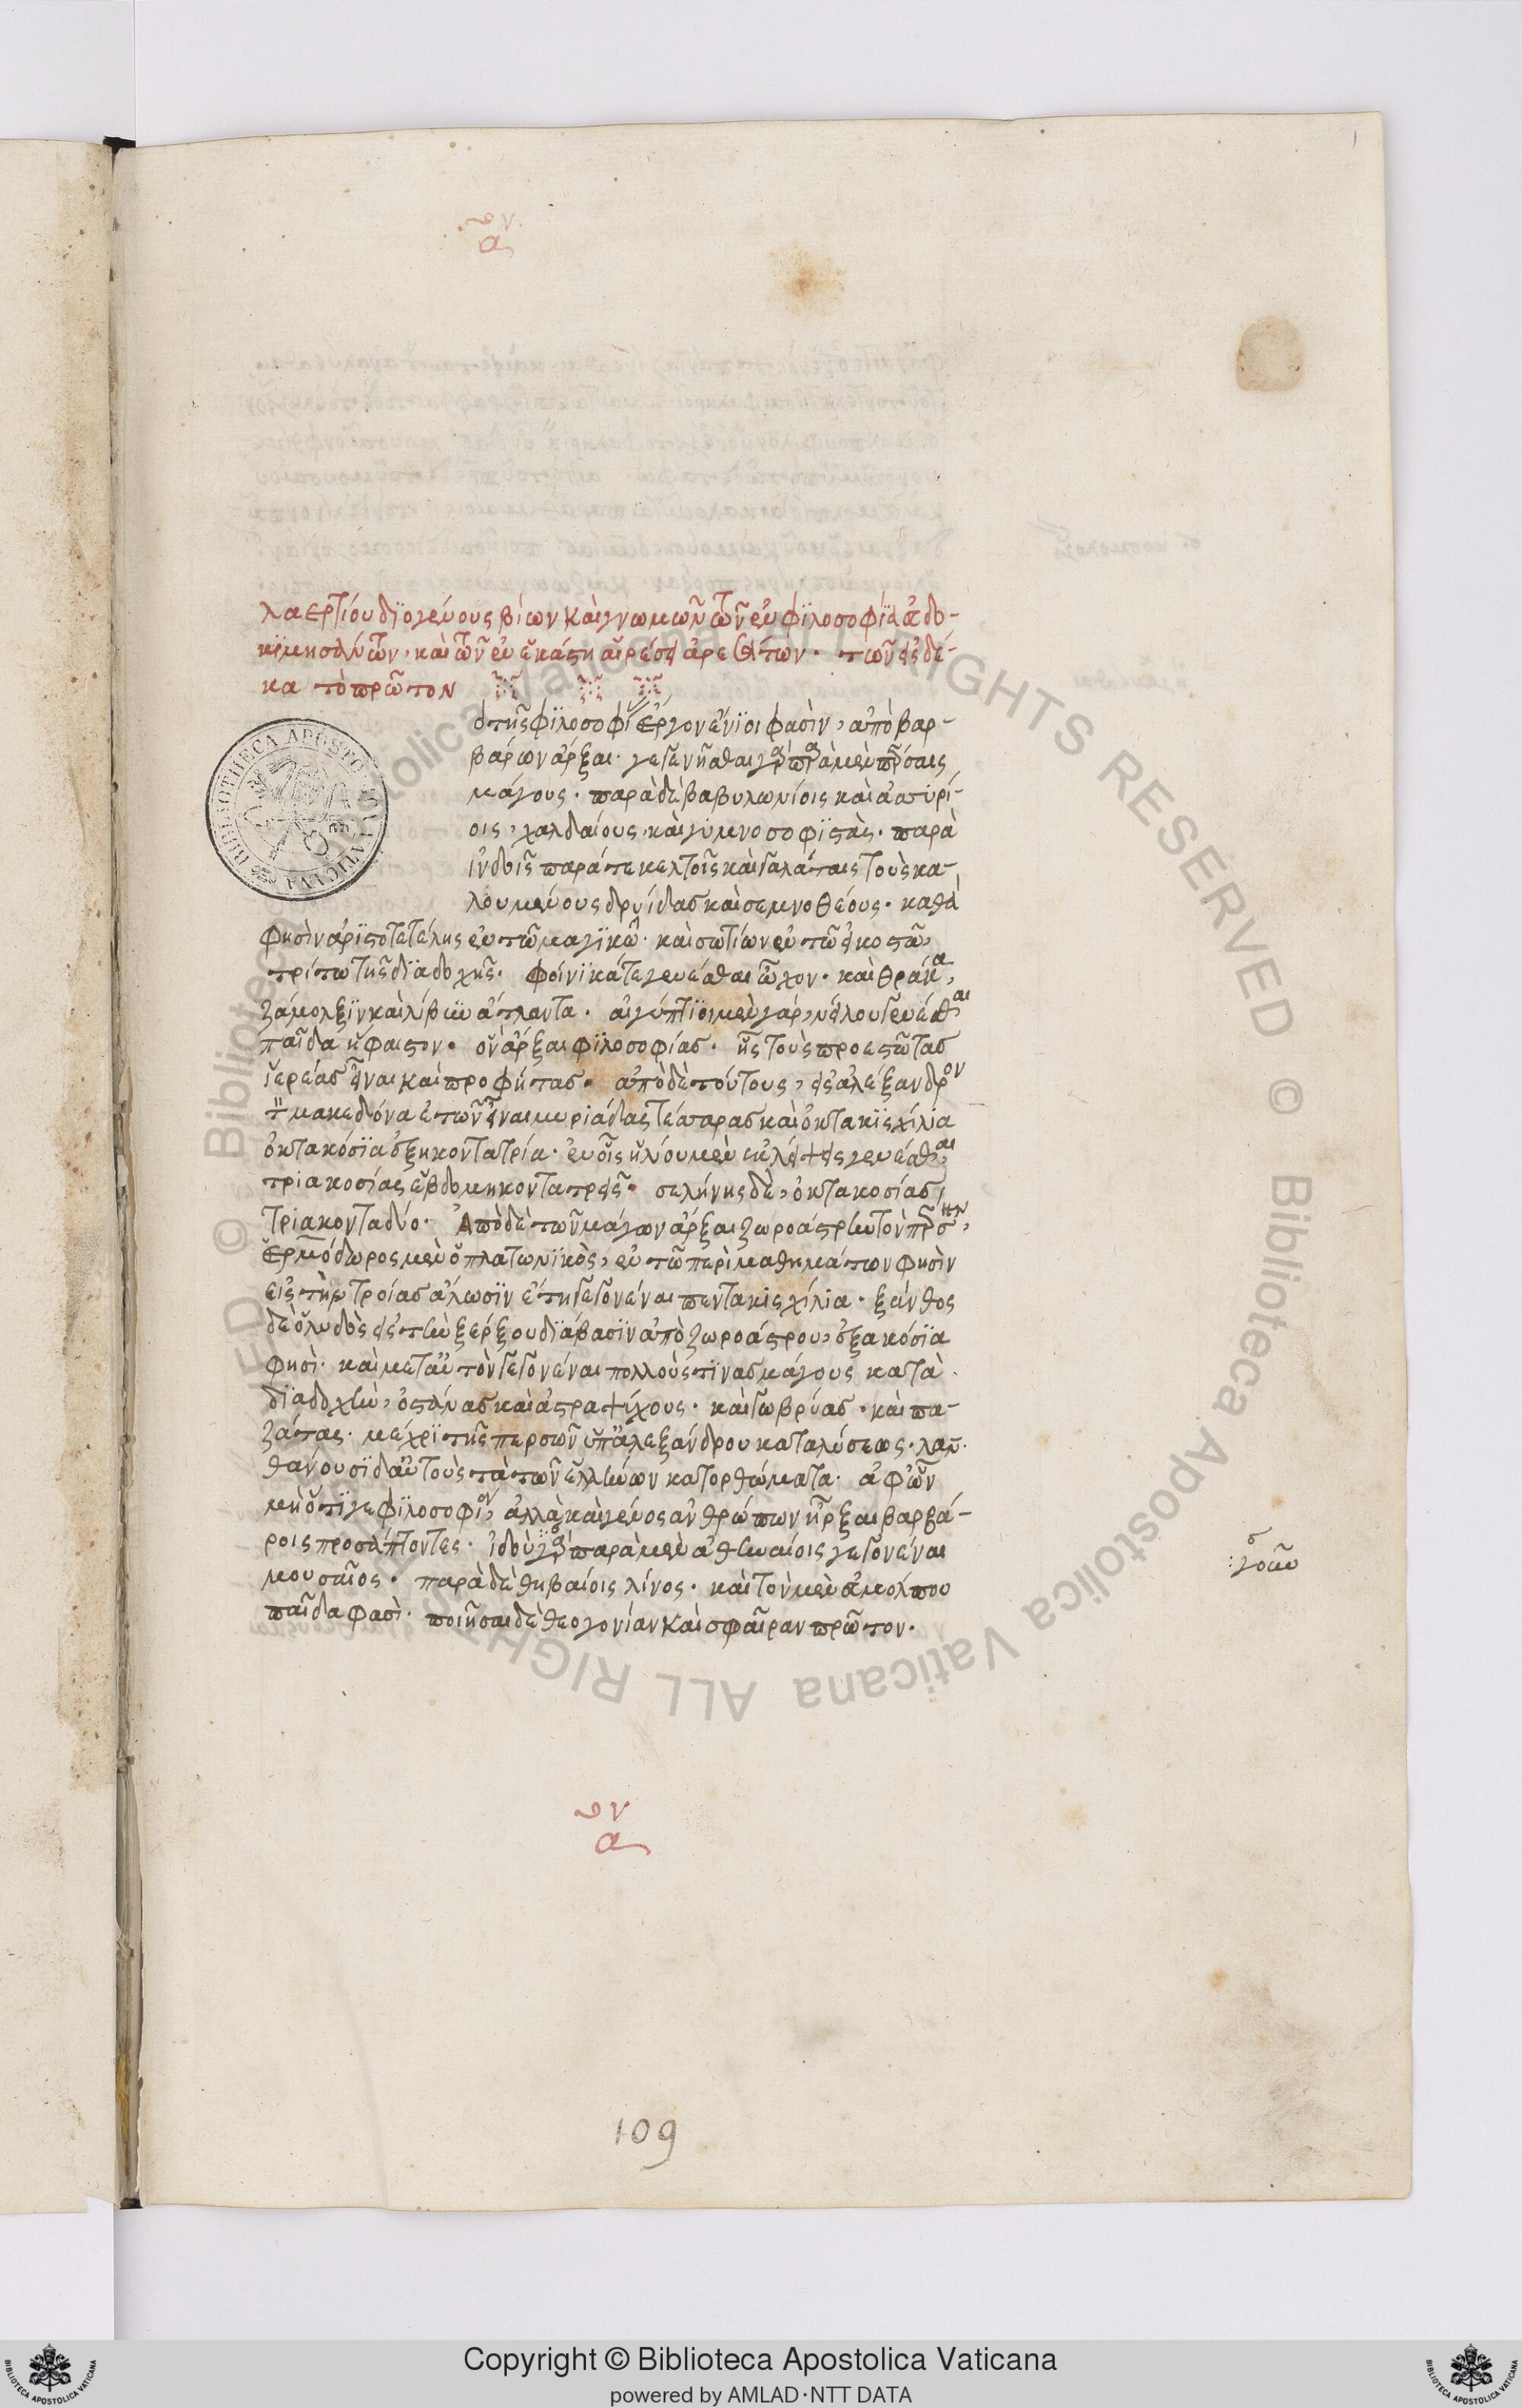 1
ον
α
λαερτίου διογένους βίων καὶ γνωμῶν τῶν ἐν φϊλοσοφίᾳ εὐδο-
κϊμησάντων, καὶ τῶν ἐν ἑκάστη αἱρέσει ἀρεσάντων. τῶν εἰς δέ-
κα τὸ πρῶτον
ὸ τῆς φϊλοσοφίας ἔργον ἔνϊοι φασὶν, ἀπὸ βαρ-
βάρων ἄρξαι. γεγενῆσθαι γὰρ παρὰ μὲν πέρσαις
μάγους. παρὰ δὲ βαβυλωνίοις καὶ ἀσσυρί-
οις, χαλδαίους, καὶ γυμνοσοφϊστὰς. παρὰ
ἰνδοῖς παρά τε κελτοῖς καὶ γαλάταις τοὺς κα-
λουμένους δρυίδας καὶ σεμνοθέους. καθὰ
φησὶν ἀρϊστοτέλης ἐν τῶ μαγϊκῶ. καὶ σωτίων ἐν τῶ εἰκοστῶ
τρίτω τῆς δϊαδοχῆς. φοίνϊκά τε γενέσθαι ὦχον. καὶ θρᾶκα,
ζάμολξϊν καὶ λίβυν ἄτλαντα. αἰγύπτϊοι μὲν γὰρ, νείλου γενέσθαι
παῖδα ἥφαιστον. ὃν ἄρξαι φϊλοσοφίας. ἧς τοὺς προεστῶτας
ἱερέας εἶναι καὶ προφήτας. ἀπὸ δὲ τούτους, εἰς ἀλέξανδρον
τὸν μακεδόνα ἐτῶν εἶναι μυριάδας τέσσαρας καὶ ὀκτακϊσχίλια
ὀκτακόσϊα ἑξήκοντα τρία. ἐν οἷς ἡλίου μὲν ἐκλείψεις γενέσθαι
τριακοσίας ἑβδομήκοντα τρεῖς. σελήνης δὲ, ὀκτακοσίας
τριάκοντα δύο. Ἀπὸ δὲ τῶν μάγων ἄρξαι ζωροάστρην τὸν πέρσην,
ἑρμόδωρος μὲν ὁ πλατωνϊκὸς, ἐν τῶ περὶ μαθημάτων φησὶν
εἰς τὴν τροίας ἅλωσϊν ἔτη γεγονέναι πεντακισχίλια. ξάνθος
δὲ ὁ λυδὸς εἰς τὴν ξέρξου δϊάβασϊν ἀπὸ ζωροάστρου, ἑξακόσϊα
φησὶ. καὶ μετ' αὐτὸν γεγονέναι πολλοὺς τϊνας μάγους κατὰ
δϊαδοχὴν, ὀστάνας καὶ ἀστραψύχους. καὶ γωβρύας. καὶ πα-
ζάτας. μέχρϊ τῆς περσῶν ὑπ' ἀλεξάνδρου καταλύσεως. λαν-
θάνουσϊ δ' αὐτοὺς τὰ τῶν ἑλλήνων κατορθώματα. ἀφ' ὧν
μὴ ὅτϊ γε φϊλοσοφία, ἀλλὰ καὶ γένος ἀνθρώπων ἦρξαι βαρβά-
ροις προσάπτοντες. ἰδοὺ γὰρ παρὰ μὲν ἀθηναίοις γεγονέναι
μουσαῖος. παρὰ δὲ θηβαίοις λίνος. καὶ τὸν μὲν εὐμόλπου
παῖδα φασὶ. ποιῆσαι δὲ θεογονίαν καὶ σφαῖραν πρῶτον.
ον
α
109
BIBLIOTHECA APOSTOLICA VATICANA
Copyright © Biblioteca Apostolica Vaticana
powered by AMLAD·NTT DATA